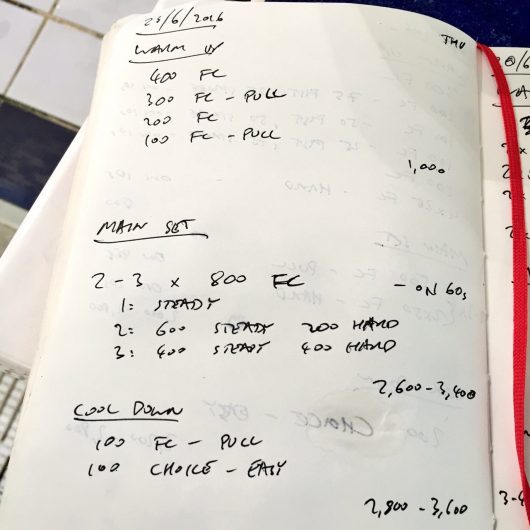 25/6/2026 THU
WARM UP
400 FC
300 FC - PULL
200 FC
100 FC - PULL
1,000
MAIN SET
2-3 x 800 FC - ON 60s
1: STEADY
2: 600 STEADY 200 HARD
3: 400 STEADY 400 HARD
2,600-3,400
COOL DOWN
100 FC - PULL
100 CHOICE - EASY
2,800-3,600